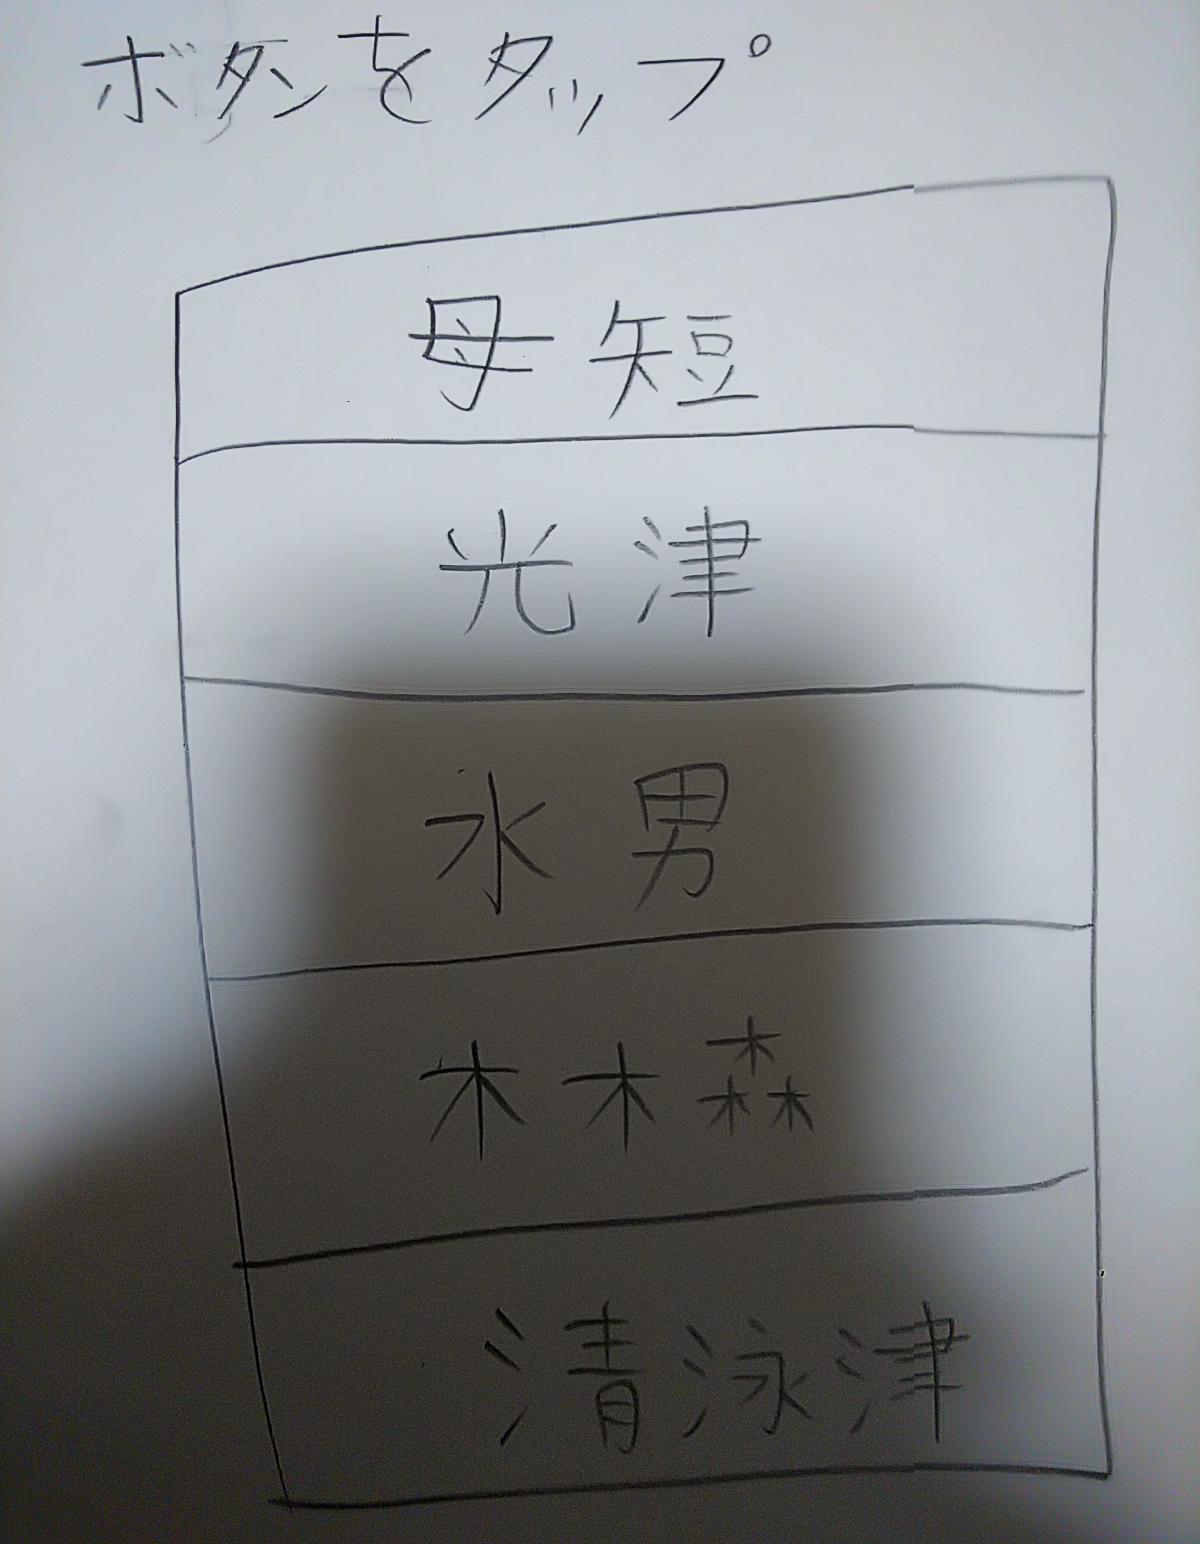 ボタンをタップ
母短
光津
水男
木木森
清泳津